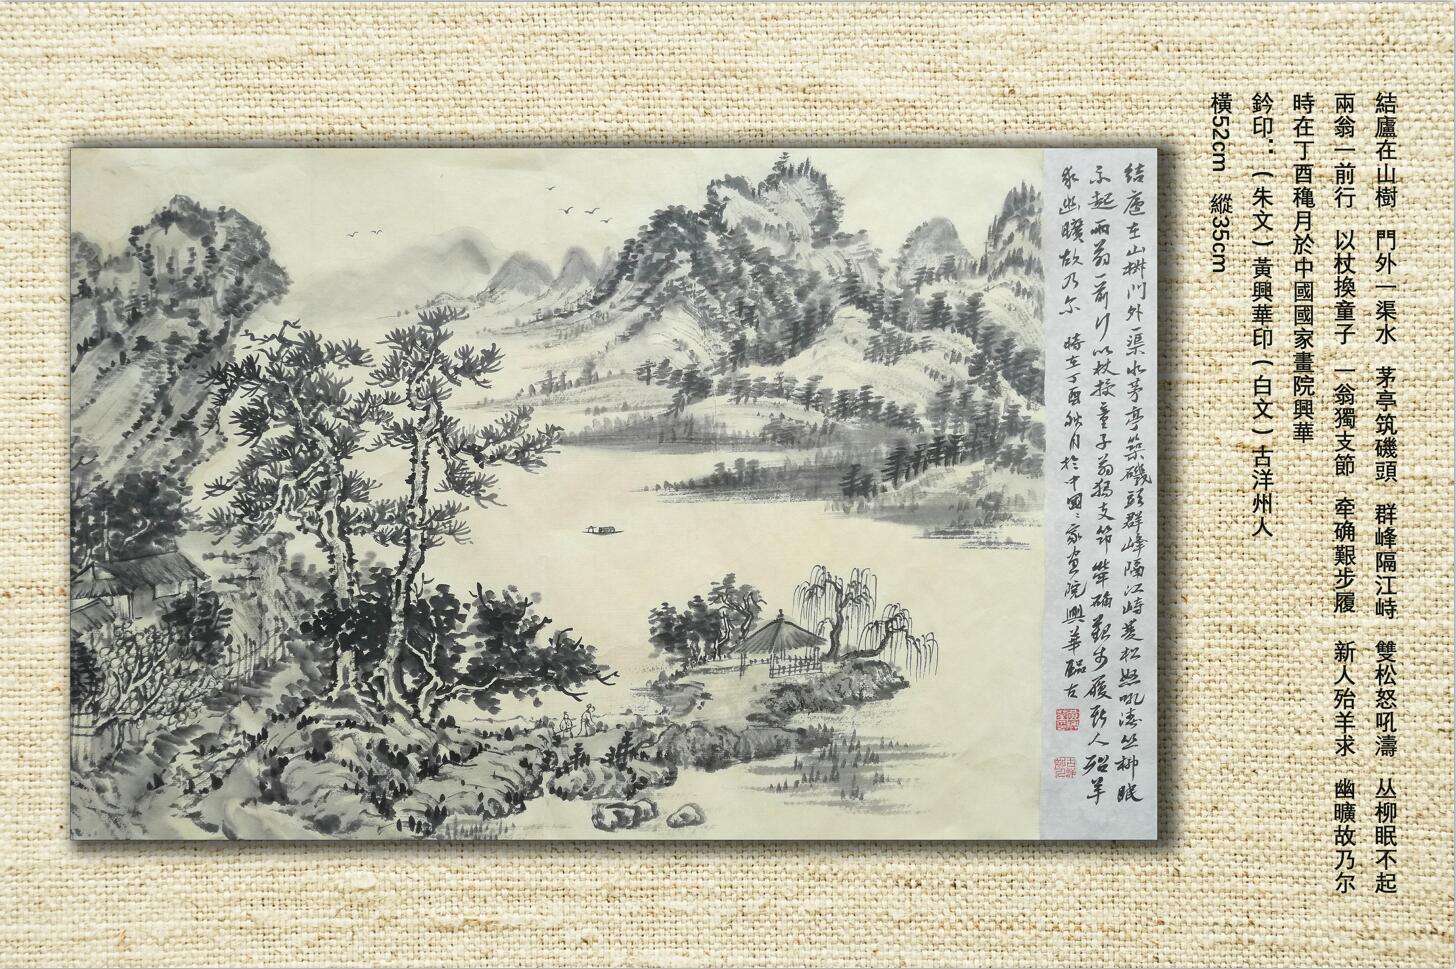 結廬在山樹　門外一渠水　茅亭筑磯頭　群峰隔江峙　雙松怒吼濤　丛柳眠不起
兩翁一前行　以杖換童子　一翁獨支節　牵确艱步履　新人殆羊求　幽曠故乃尔
時在丁酉穐月於中國國家畫院興華
鈐印：（朱文）黃興華印（白文）古洋州人
橫52cm　縱35cm
结廬在山樹門外渠水茅亭築磯頭群峰隔江峙䨇松怒吼濤丛柳眠
不起兩翁一前行以杖授童子翁獨支節犖确艱步履斯人殆羊
求幽曠故乃尔　時在丁酉秋月於中國々家画院興華臨古